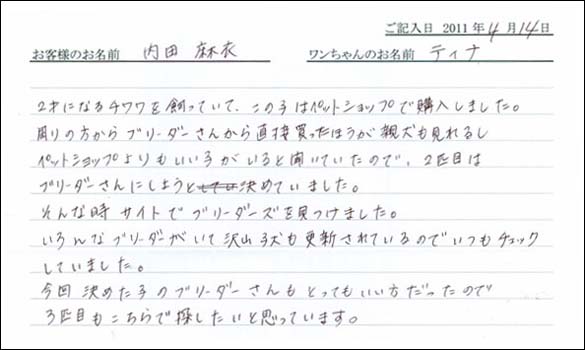 ご記入日 2011年4月14日
お客様のお名前 内田 麻衣 ワンちゃんのお名前 ティナ
2才になるチワワを飼っていて、この子はペットショップで購入しました。
周りの方からブリーダーさんから直接買ったほうが親犬も見れるし
ペットショップよりもいい子がいると聞いていたので、2匹目は
ブリーダーさんにしようと決めていました。
そんな時サイトでブリーダーズを見つけました。
いろんなブリーダーがいて沢山子犬も更新されているのでいつもチェック
していました。
今回決めた子のブリーダーさんもとってもいい方だったので
3匹目もこちらで探したいと思っています。